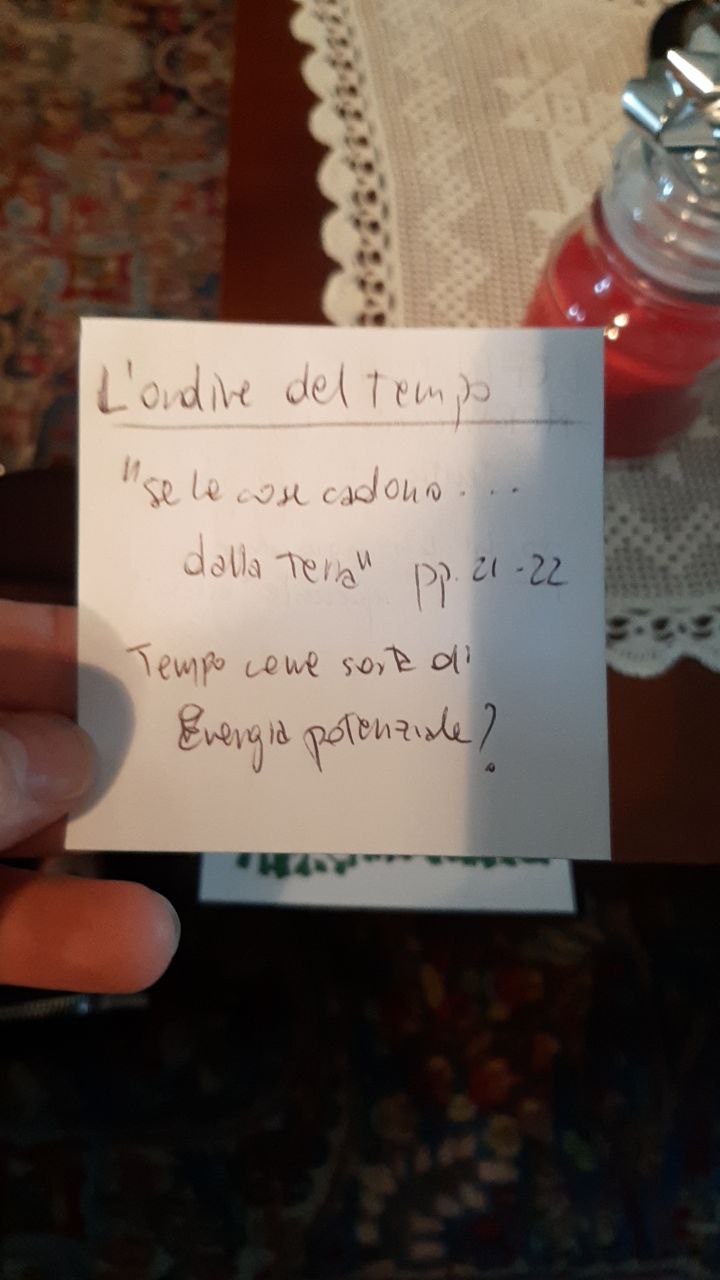 L'ordine del tempo
"se le cose cadono ...
dalla Terra" pp. 21-22
Tempo come sorta di
Energia potenziale?